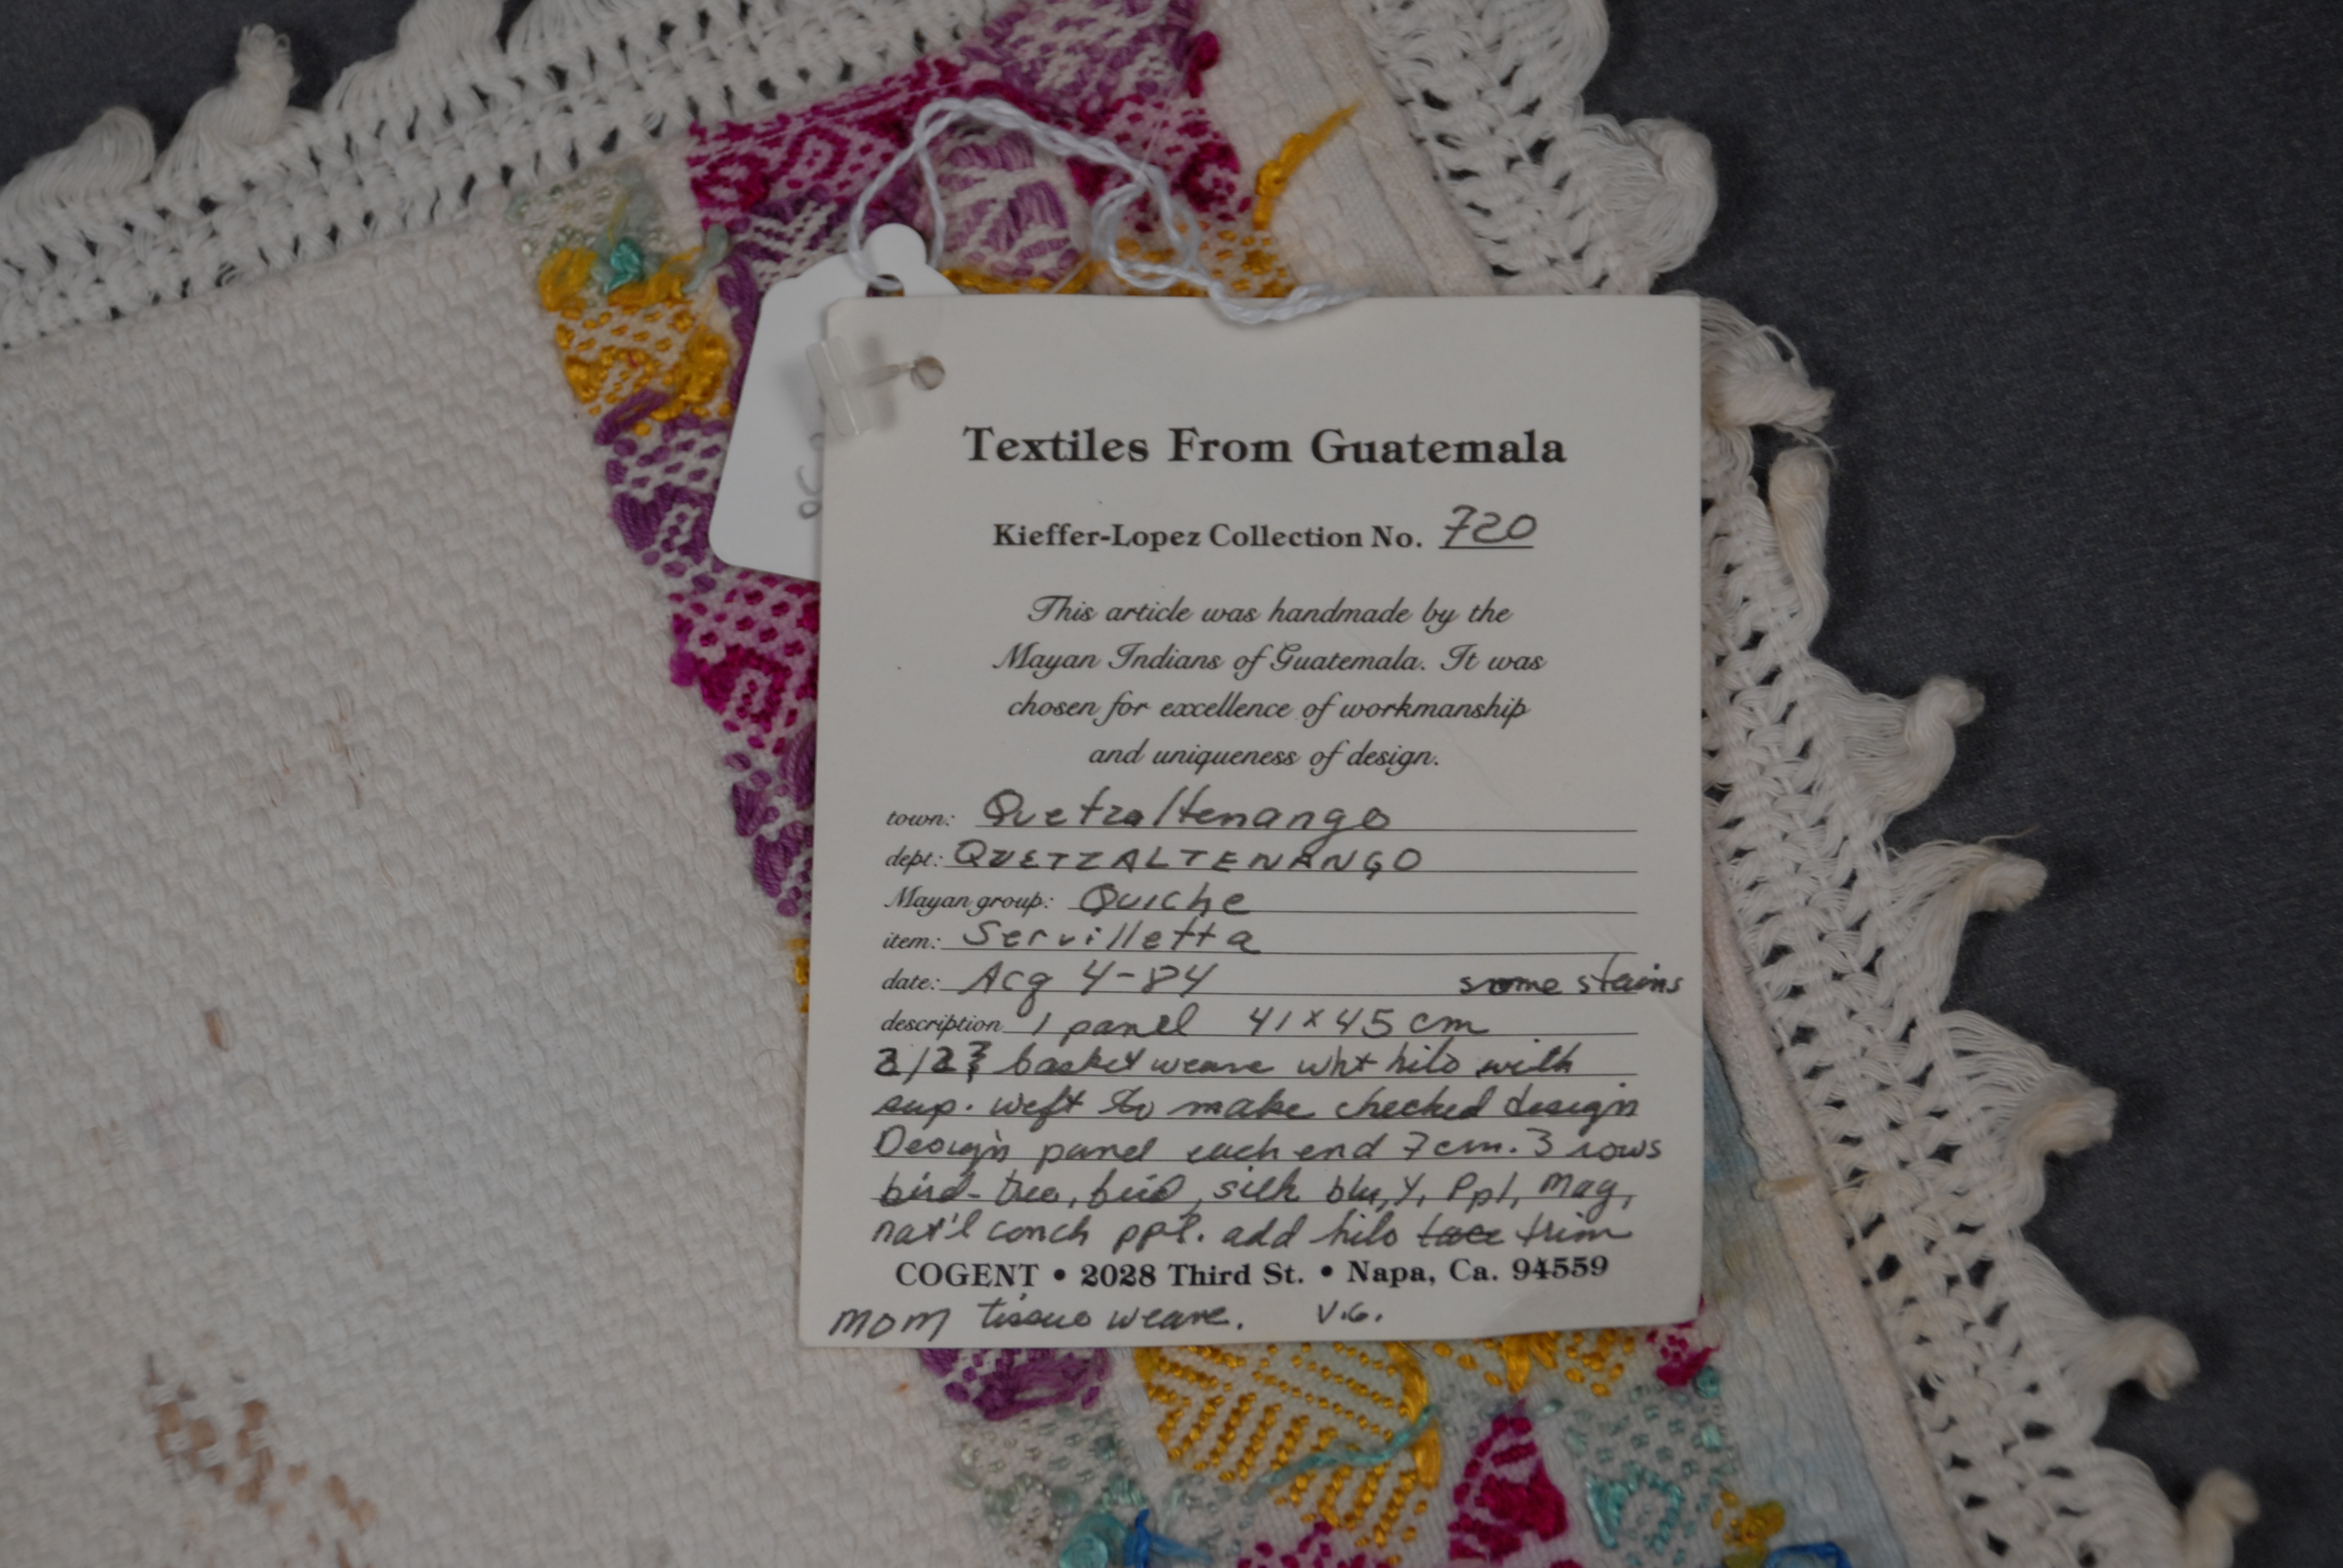 Textiles From Guatemala
Kieffer-Lopez Collection No. 720
This article was handmade by the
Mayan Indians of Guatemala. It was
chosen for excellence of workmanship
and uniqueness of design.
town: Quetzaltenango
dept: QUETZALTENANGO
Mayan group: Quiche
item: Servilletta
date: Acq 4-84 some stains
description 1 panel 41 x 45 cm
basket weave wht hilo with
sup. weft to make checked design
Design panel each end 7 cm. 3 rows
bird-tree, bird, silk blu, Y, Ppl, Mag,
nat'l conch ppl. add hilo trim
COGENT • 2028 Third St. • Napa, Ca. 94559
MOM tissue weave. V.G.